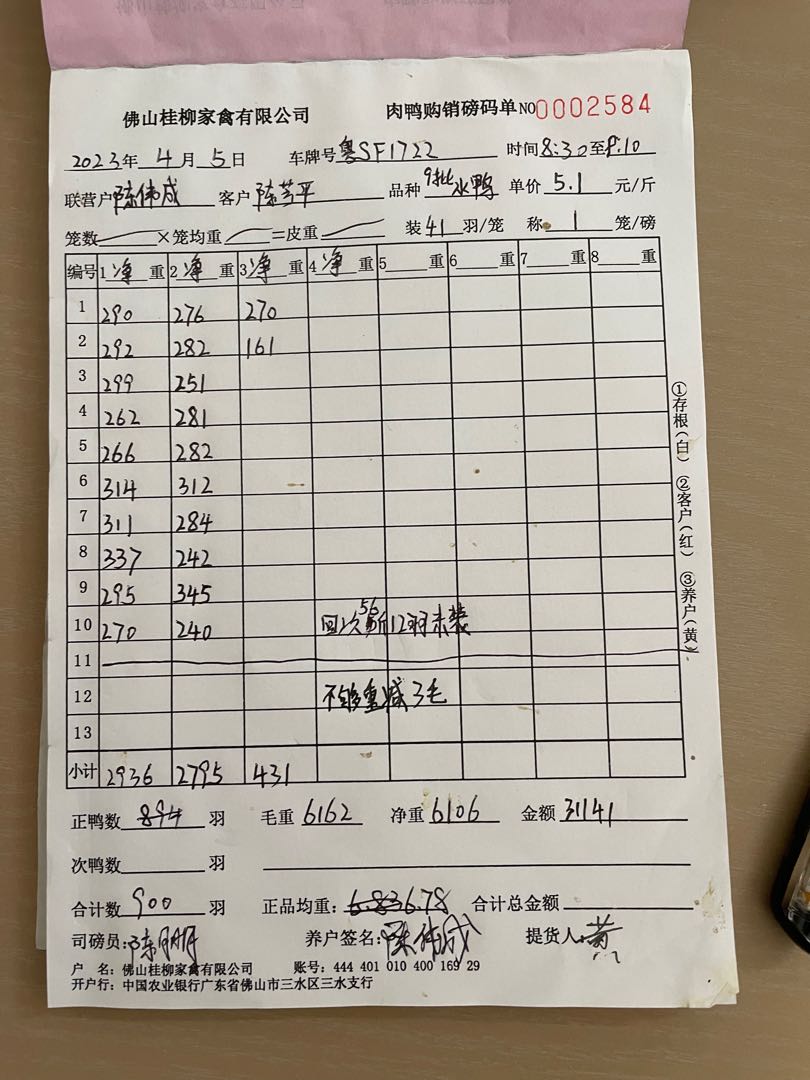 佛山桂柳家禽有限公司 肉鸭购销磅码单 NO0002584
2023年 4月 5日 车牌号 粤SF1722 时间8:30至9:10
联营户 陈伟成 客户 陈芳平 品种 9批水鸭 单价 5.1 元/斤
笼数 ×笼均重 =皮重 装 41 羽/笼 称 1 笼/磅
编号 1 净 重 2 净 重 3 净 重 4 净 重 5 重 6 重 7 重 8 重
1 290 276 270
2 292 282 161
3 299 251
4 262 281
5 266 282
6 314 312
7 311 284
8 337 242
9 295 345
56
10 270 240 回次 12羽未装
11
12 不够重减3毛
13
小计 2936 2795 431
正鸭数 894 羽 毛重 6162 净重 6106 金额 31141
次鸭数 羽
合计数 900 羽 正品均重: 6.83 6.78 合计总金额
司磅员: 陈 养户签名: 陈伟成 提货人: 黄
户 名: 佛山桂柳家禽有限公司 账号: 444 401 010 400 169 29
开户行: 中国农业银行广东省佛山市三水区三水支行
①存根(白) ②客户(红) ③养户(黄)